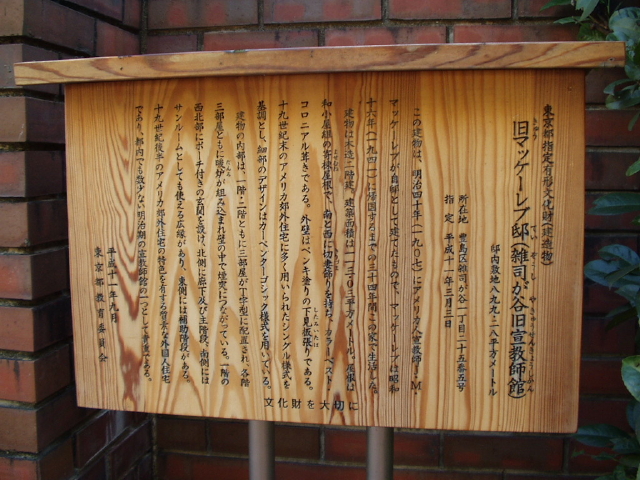 東京都指定有形文化財(建造物)
旧マッケーレブ邸(雑司が谷旧宣教師館)
所在地 豊島区雑司が谷一丁目二十五番五号
邸内敷地八九九・二八平方メートル
指定 平成十一年三月三日
この建物は、明治四十年(一九〇七)にアメリカ人宣教師J・M・
マッケーレブが自邸として建てたもので、マッケーレブは昭和
十六年(一九四一)に帰国するまでの三十四年間この家で生活した。
建物は木造二階建、建築面積は一二〇・三平方メートル、屋根は
和小屋組の寄棟屋根で、南と西に切妻飾りを持ち、カラーベスト・
コロニアル葺きである。外壁はペンキ塗りの下見板張りである。
十九世紀末のアメリカ郊外住宅に多く用いられたシングル様式を
基調とし、細部のデザインはカーペンターゴシック様式を用いている。
建物の内部は、一階・二階ともに三部屋が丁字型に配置され、各階
三部屋ともに暖炉が組み込まれ壁の中で煙突につながっている。一階の
西北部にポーチ付きの玄関を設け、北側に廊下及び主階段、南側には
サンルームとしても使える広縁があり、東側には補助階段がある。
十九世紀後半のアメリカ郊外住宅の特色を有する質素な外国人住宅
であり、都内でも数少ない明治期の宣教師館の一つとして貴重である。
平成十一年九月
東京都教育委員会
文化財を大切に